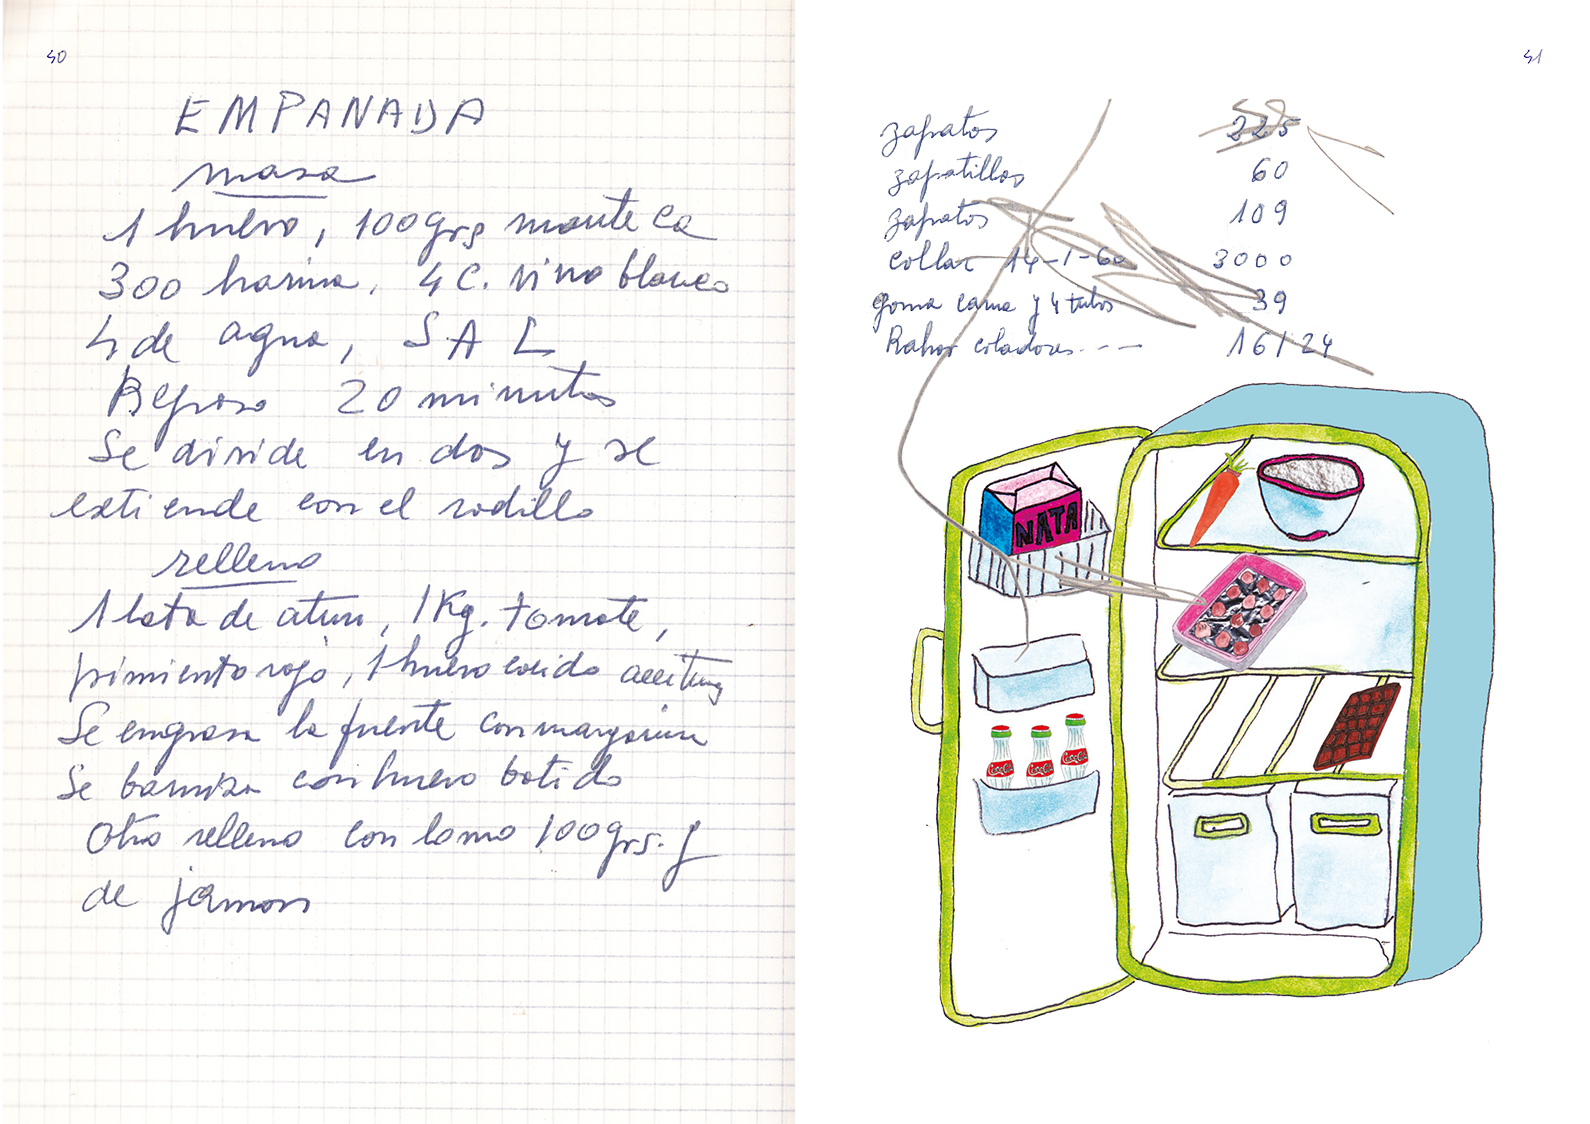 40
EMPANADA
masa
1 huevo, 100 grs manteca
300 harina, 4 C. vino blanco
4 de agua, SAL
Reposo 20 minutos
Se divide en dos y se
extiende con el rodillo
relleno
1 lata de atun, 1 Kg. tomate,
pimiento rojo, 1 huevo cocido aceitunas
Se engrasa la fuente con margarina
Se barniza con huevo batido
Otro relleno con lomo 100 grs. y
de jamon
41
zapatos 225
zapatillas 60
zapatos 109
collar 14-1-60 3000
goma cama y 4 tubos 39
coladores 16/24
NATA